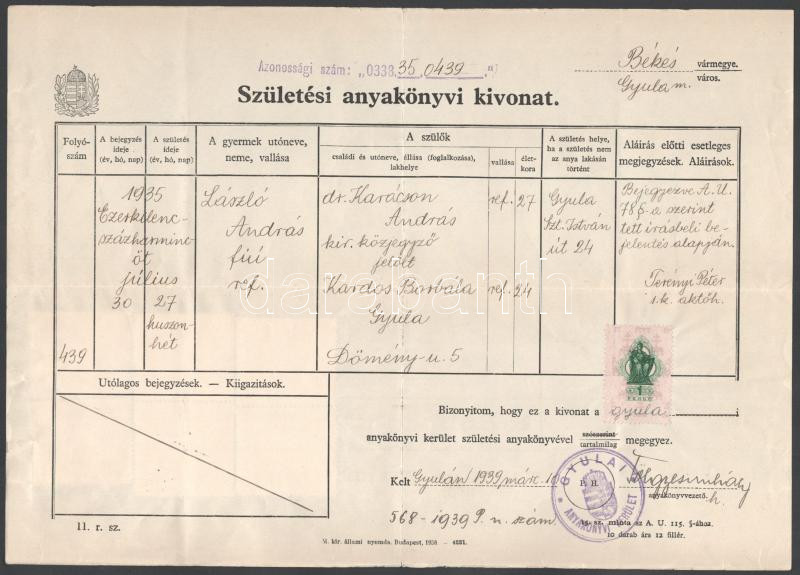 Azonossági szám: „0333 35 0439 "
Békés vármegye.
Gyula m. város.
Születési anyakönyvi kivonat.
Folyó-
szám
A bejegyzés
ideje
(év, hó, nap)
A születés
ideje
(év, hó, nap)
A gyermek utóneve,
neme, vallása
A szülők
családi és utóneve, állása (foglalkozása),
lakhelye
vallása
élet-
kora
A születés helye,
ha a születés nem
az anya lakásán
történt
Aláírás előtti esetleges
megjegyzések. Aláírások.
439
1935
Ezerkilenc-
százharminc-
öt
július
30 27
huszon-
hét
László
András
fiú
ref.
dr. Karácson
András
kir. közjegyző
jelölt
ref. 27
Kardos Borbála
ref. 24
Gyula
Dömény-u. 5
Gyula
Szt. István
út 24
Bejegyezve A. U.
78 §-a szerint
tett írásbeli be-
jelentés alapján.
Terényi Péter
s.k. aktóh.
darabanth
1
PENGŐ
Utólagos bejegyzések. — Kiigazítások.
Bizonyitom, hogy ez a kivonat a gyula i
anyakönyvi kerület születési anyakönyvével szószerint
tartalmilag megegyez.
Kelt Gyulán 1939 márc.
P. H.
anyakönyvezető
h.
GYULAI
ANYAKÖNYVI KERÜLET
568-1939 P. n. szám.
11. r. sz.
15. sz. minta az A. U. 115. §-ához.
10 darab ára 12 fillér.
M. kir. állami nyomda. Budapest, 1938 — 4251.